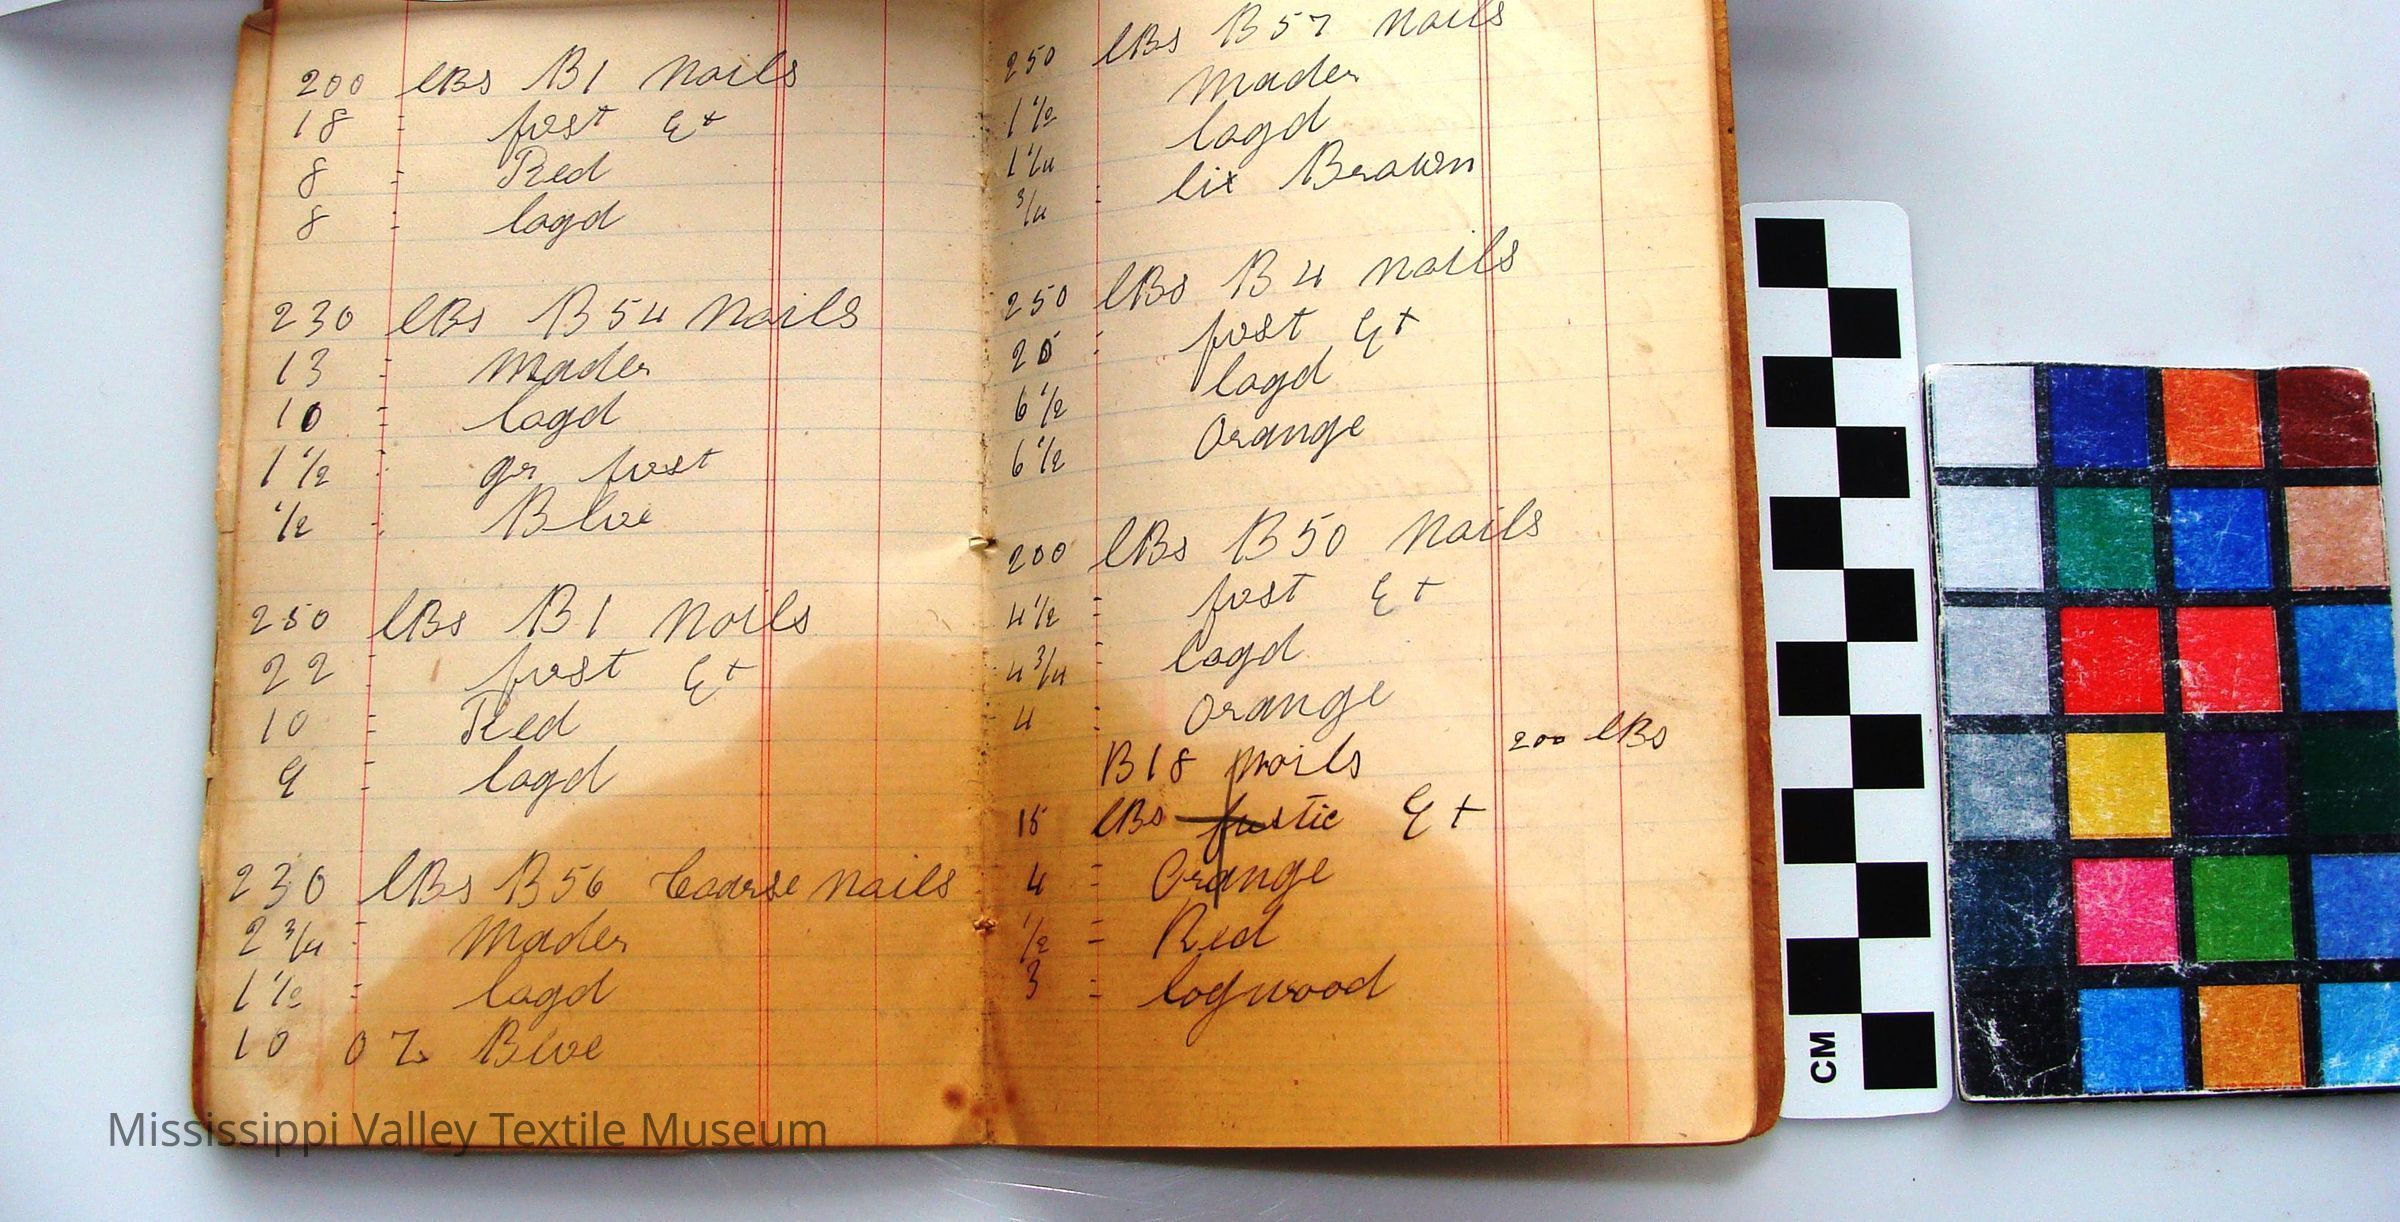 200 lBs B1 Noils
18 = fust Ext
8 = Red
8 = logd
230 lBs B54 Noils
13 = Mader
10 = logd
1 1/2 = gr fust
1/2 = Blue
250 lBs B1 Noils
22 = fust Ext
10 = Red
9 = logd
230 lBs B56 Coarse Noils
2 3/4 = Mader
1 1/2 = logd
10 OZ Blue
250 lBs B57 Noils
1 1/2 Mader
1 1/4 logd
3/4 = lix Brown
250 lBs B4 Noils
25 = fust Ext
6 1/2 logd
6 1/2 Orange
200 lBs B50 Noils
4 1/2 = fust Ext
4 3/4 = logd
4 = Orange
B18 Noils 200 lBs
15 lBs fustic Ext
4 = Orange
1/2 = Red
3 = logwood
CM
Mississippi Valley Textile Museum